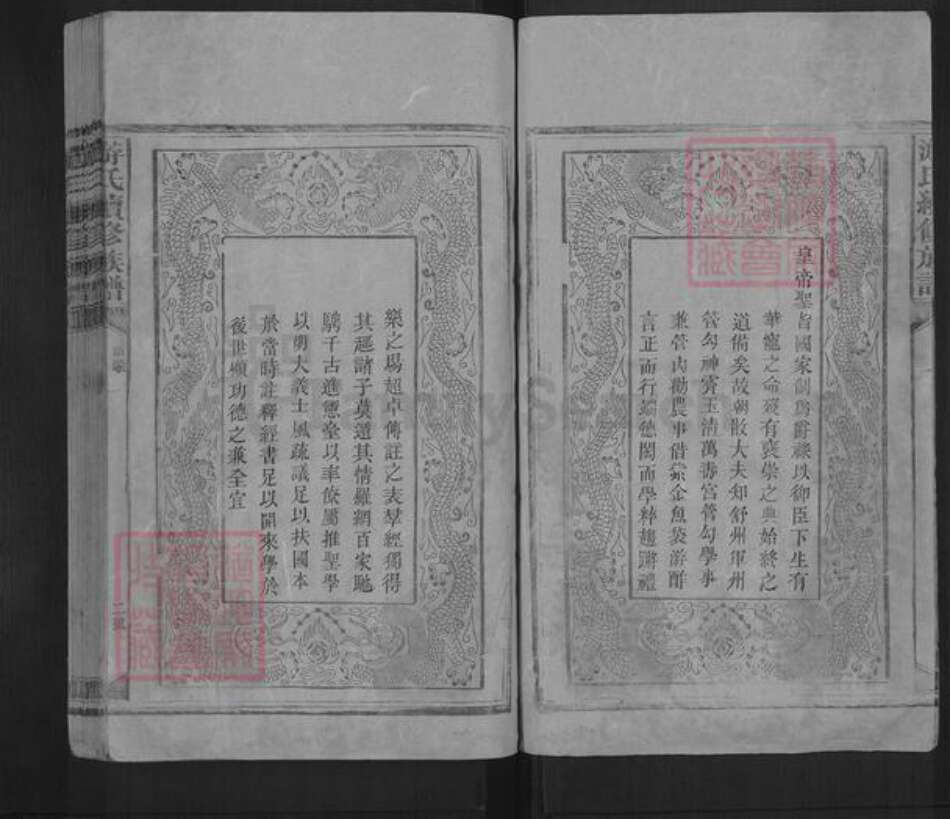 游氏續修族譜
皇帝聖旨國家制爲爵祿以御臣下生有
華寵之命歿有褒崇之典始終之
道備矣故朝散大夫知舒州軍州
管勾神霄玉清萬壽宮管勾學事
兼管內勸農事借紫金魚袋游酢
言正而行端德閎而學粹趨蹌禮
樂之場超卓傳註之表羣經獨得
其趣諸子莫遺其情羅網百家馳
騁千古進憲臺以率僚屬推聖學
以明大義士風疏議足以扶國本
於當時註釋經書足以開來學於
後世頌功德之兼全宜
游氏續修族譜